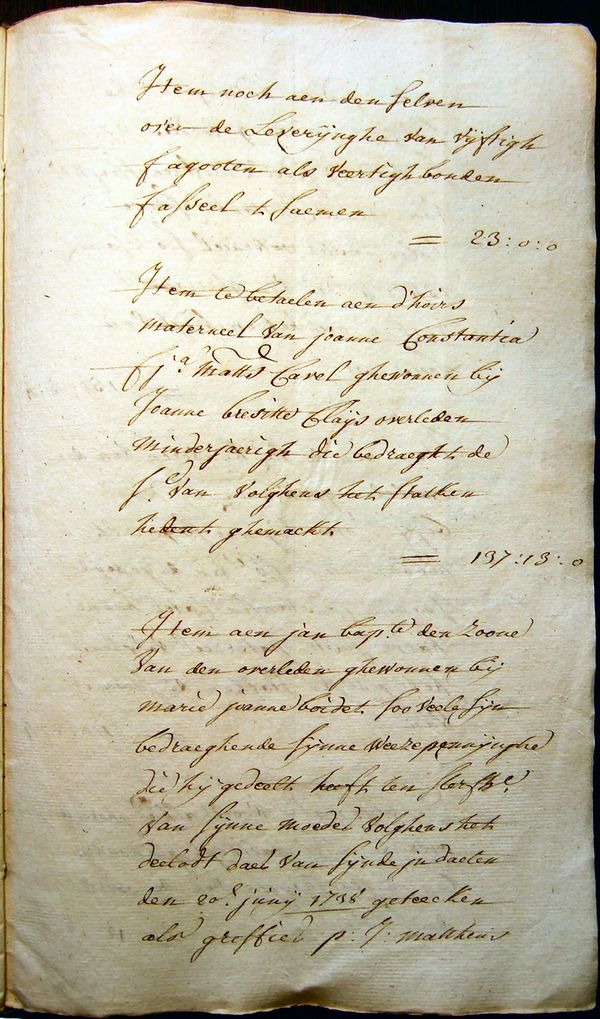 Item noch aen den selven
over de Leverijnghe van vijftigh
fagooten als veertigh bonden
fasseel t' saemen
= 23 : 0 : 0
Item te betaelen aen d'hoirs
materneel van joanne Constantia
fa. Matts. Carel ghewonnen bij
Joanne bresitte Claijs overleden
minderjaerigh die bedraeght de
se. van volghens het stalken
hedent ghemackt
= 137 : 13 : 0
Item aen jan bapte. den zoone
van den overleden ghewonnen bij
marie joanne boidet soo veele sijn
bedraeghende sijnne weezepennijnghe
die hij gedeelt heeft ten sterfhe.
van sijnne moeder volghens het
deelodt daer van sijnde in daeten
den 20e. junij 1738 geteecken
als greffier p: J: Matthius